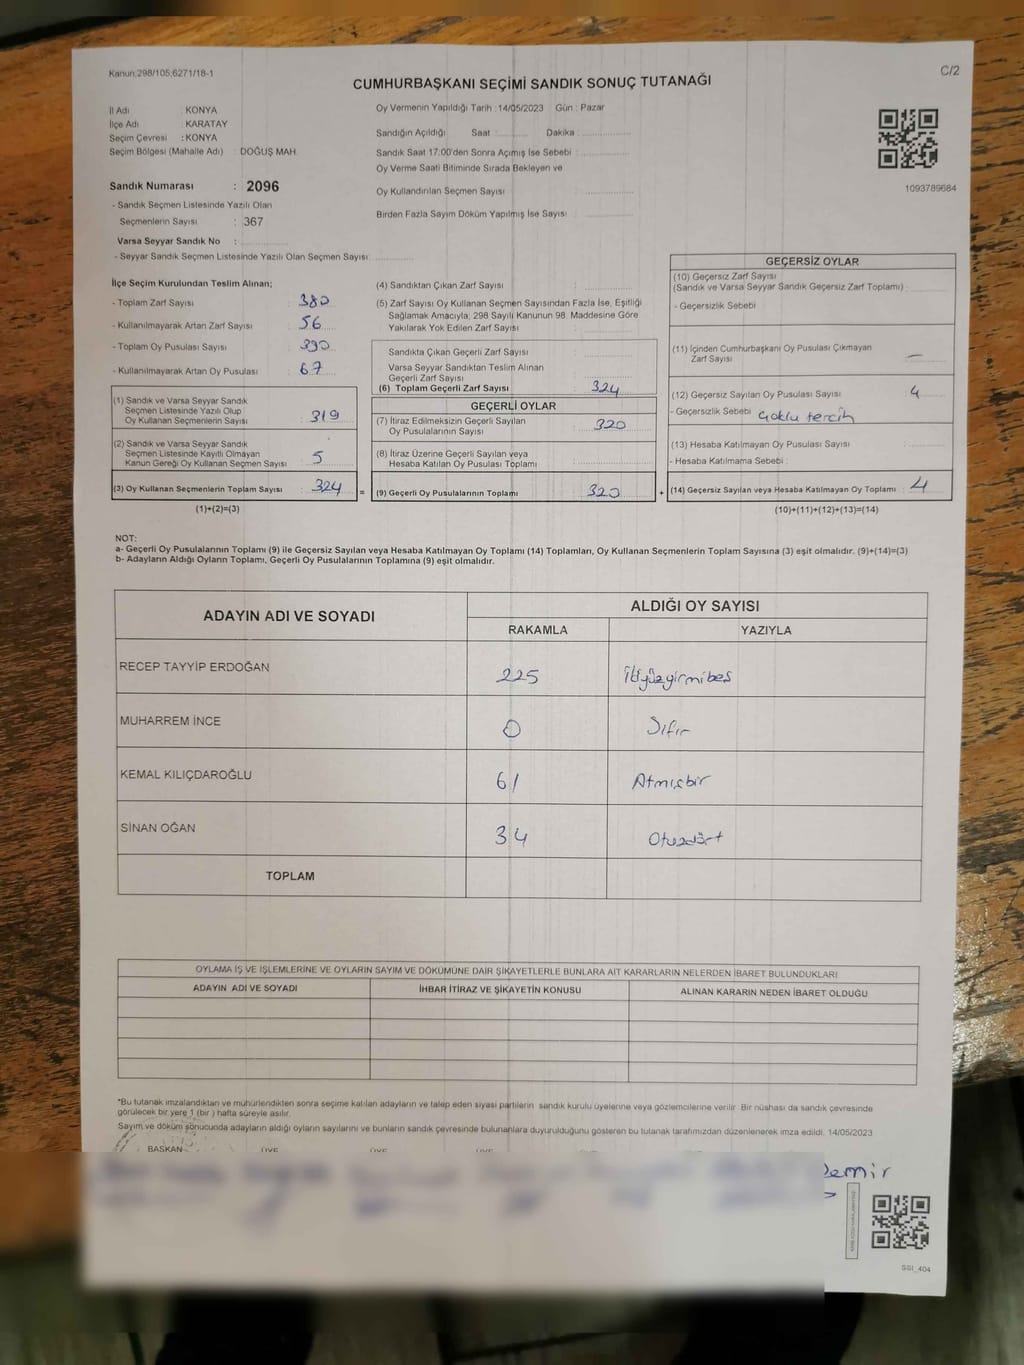 Kanun:298/105;6271/18-1
C/2
CUMHURBAŞKANI SEÇİMİ SANDIK SONUÇ TUTANAĞI
İl Adı : KONYA
İlçe Adı : KARATAY
Seçim Çevresi : KONYA
Seçim Bölgesi (Mahalle Adı) : DOĞUŞ MAH.
Sandık Numarası : 2096
- Sandık Seçmen Listesinde Yazılı Olan
Seçmenlerin Sayısı : 367
Varsa Seyyar Sandık No :
- Seyyar Sandık Seçmen Listesinde Yazılı Olan Seçmen Sayısı:
Oy Vermenin Yapıldığı Tarih :14/05/2023 Gün : Pazar
Sandığın Açıldığı Saat : Dakika :
Sandık Saat 17:00'den Sonra Açımış İse Sebebi :
Oy Verme Saati Bitiminde Sırada Bekleyen ve
Oy Kullandırılan Seçmen Sayısı :
Birden Fazla Sayım Döküm Yapılmış İse Sayısı :
1093789684
İlçe Seçim Kurulundan Teslim Alınan;
- Toplam Zarf Sayısı : 380
- Kullanılmayarak Artan Zarf Sayısı : 56
- Toplam Oy Pusulası Sayısı : 390
- Kullanılmayarak Artan Oy Pusulası : 67
(1) Sandık ve Varsa Seyyar Sandık
Seçmen Listesinde Yazılı Olup
Oy Kullanan Seçmenlerin Sayısı : 319
(2) Sandık ve Varsa Seyyar Sandık
Seçmen Listesinde Kayıtlı Olmayan
Kanun Gereği Oy Kullanan Seçmen Sayısı : 5
(3) Oy Kullanan Seçmenlerin Toplam Sayısı : 324
(1)+(2)=(3)
(4) Sandıktan Çıkan Zarf Sayısı :
(5) Zarf Sayısı Oy Kullanan Seçmen Sayısından Fazla İse, Eşitliği
Sağlamak Amacıyla; 298 Sayılı Kanunun 98. Maddesine Göre
Yakılarak Yok Edilen Zarf Sayısı :
Sandıkta Çıkan Geçerli Zarf Sayısı :
Varsa Seyyar Sandıktan Teslim Alınan
Geçerli Zarf Sayısı :
(6) Toplam Geçerli Zarf Sayısı : 324
GEÇERLİ OYLAR
(7) İtiraz Edilmeksizin Geçerli Sayılan
Oy Pusulalarının Sayısı : 320
(8) İtiraz Üzerine Geçerli Sayılan veya
Hesaba Katılan Oy Pusulası Toplamı :
= (9) Geçerli Oy Pusulalarının Toplamı : 320 +
GEÇERSİZ OYLAR
(10) Geçersiz Zarf Sayısı
(Sandık ve Varsa Seyyar Sandık Geçersiz Zarf Toplamı) :
- Geçersizlik Sebebi :
(11) İçinden Cumhurbaşkanı Oy Pusulası Çıkmayan
Zarf Sayısı : —
(12) Geçersiz Sayılan Oy Pusulası Sayısı : 4
- Geçersizlik Sebebi : çoklu tercih
(13) Hesaba Katılmayan Oy Pusulası Sayısı :
- Hesaba Katılmama Sebebi :
(14) Geçersiz Sayılan veya Hesaba Katılmayan Oy Toplamı : 4
(10)+(11)+(12)+(13)=(14)
NOT:
a- Geçerli Oy Pusulalarının Toplamı (9) ile Geçersiz Sayılan veya Hesaba Katılmayan Oy Toplamı (14) Toplamları, Oy Kullanan Seçmenlerin Toplam Sayısına (3) eşit olmalıdır. (9)+(14)=(3)
b- Adayların Aldığı Oyların Toplamı, Geçerli Oy Pusulalarının Toplamına (9) eşit olmalıdır.
ADAYIN ADI VE SOYADI ALDIĞI OY SAYISI
RAKAMLA YAZIYLA
RECEP TAYYİP ERDOĞAN 225 ikiyüzyirmibeş
MUHARREM İNCE 0 Sıfır
KEMAL KILIÇDAROĞLU 61 Atmışbir
SİNAN OĞAN 34 Otuzdört
TOPLAM
OYLAMA İŞ VE İŞLEMLERİNE VE OYLARIN SAYIM VE DÖKÜMÜNE DAİR ŞİKAYETLERLE BUNLARA AİT KARARLARIN NELERDEN İBARET BULUNDUKLARI
ADAYIN ADI VE SOYADI İHBAR İTİRAZ VE ŞİKAYETİN KONUSU ALINAN KARARIN NEDEN İBARET OLDUĞU
*Bu tutanak imzalandıktan ve mühürlendikten sonra seçime katılan adayların ve talep eden siyasi partilerin sandık kurulu üyelerine veya gözlemcilerine verilir. Bir nüshası da sandık çevresinde
görülecek bir yere 1 (bir) hafta süreyle asılır.
Sayım ve döküm sonucunda adayların aldığı oyların sayılarını ve bunların sandık çevresinde bulunanlara duyurulduğunu gösteren bu tutanak tarafımızdan düzenlenerek imza edildi. 14/05/2023
BAŞKAN ÜYE ÜYE ÜYE
Demir
SSI_404